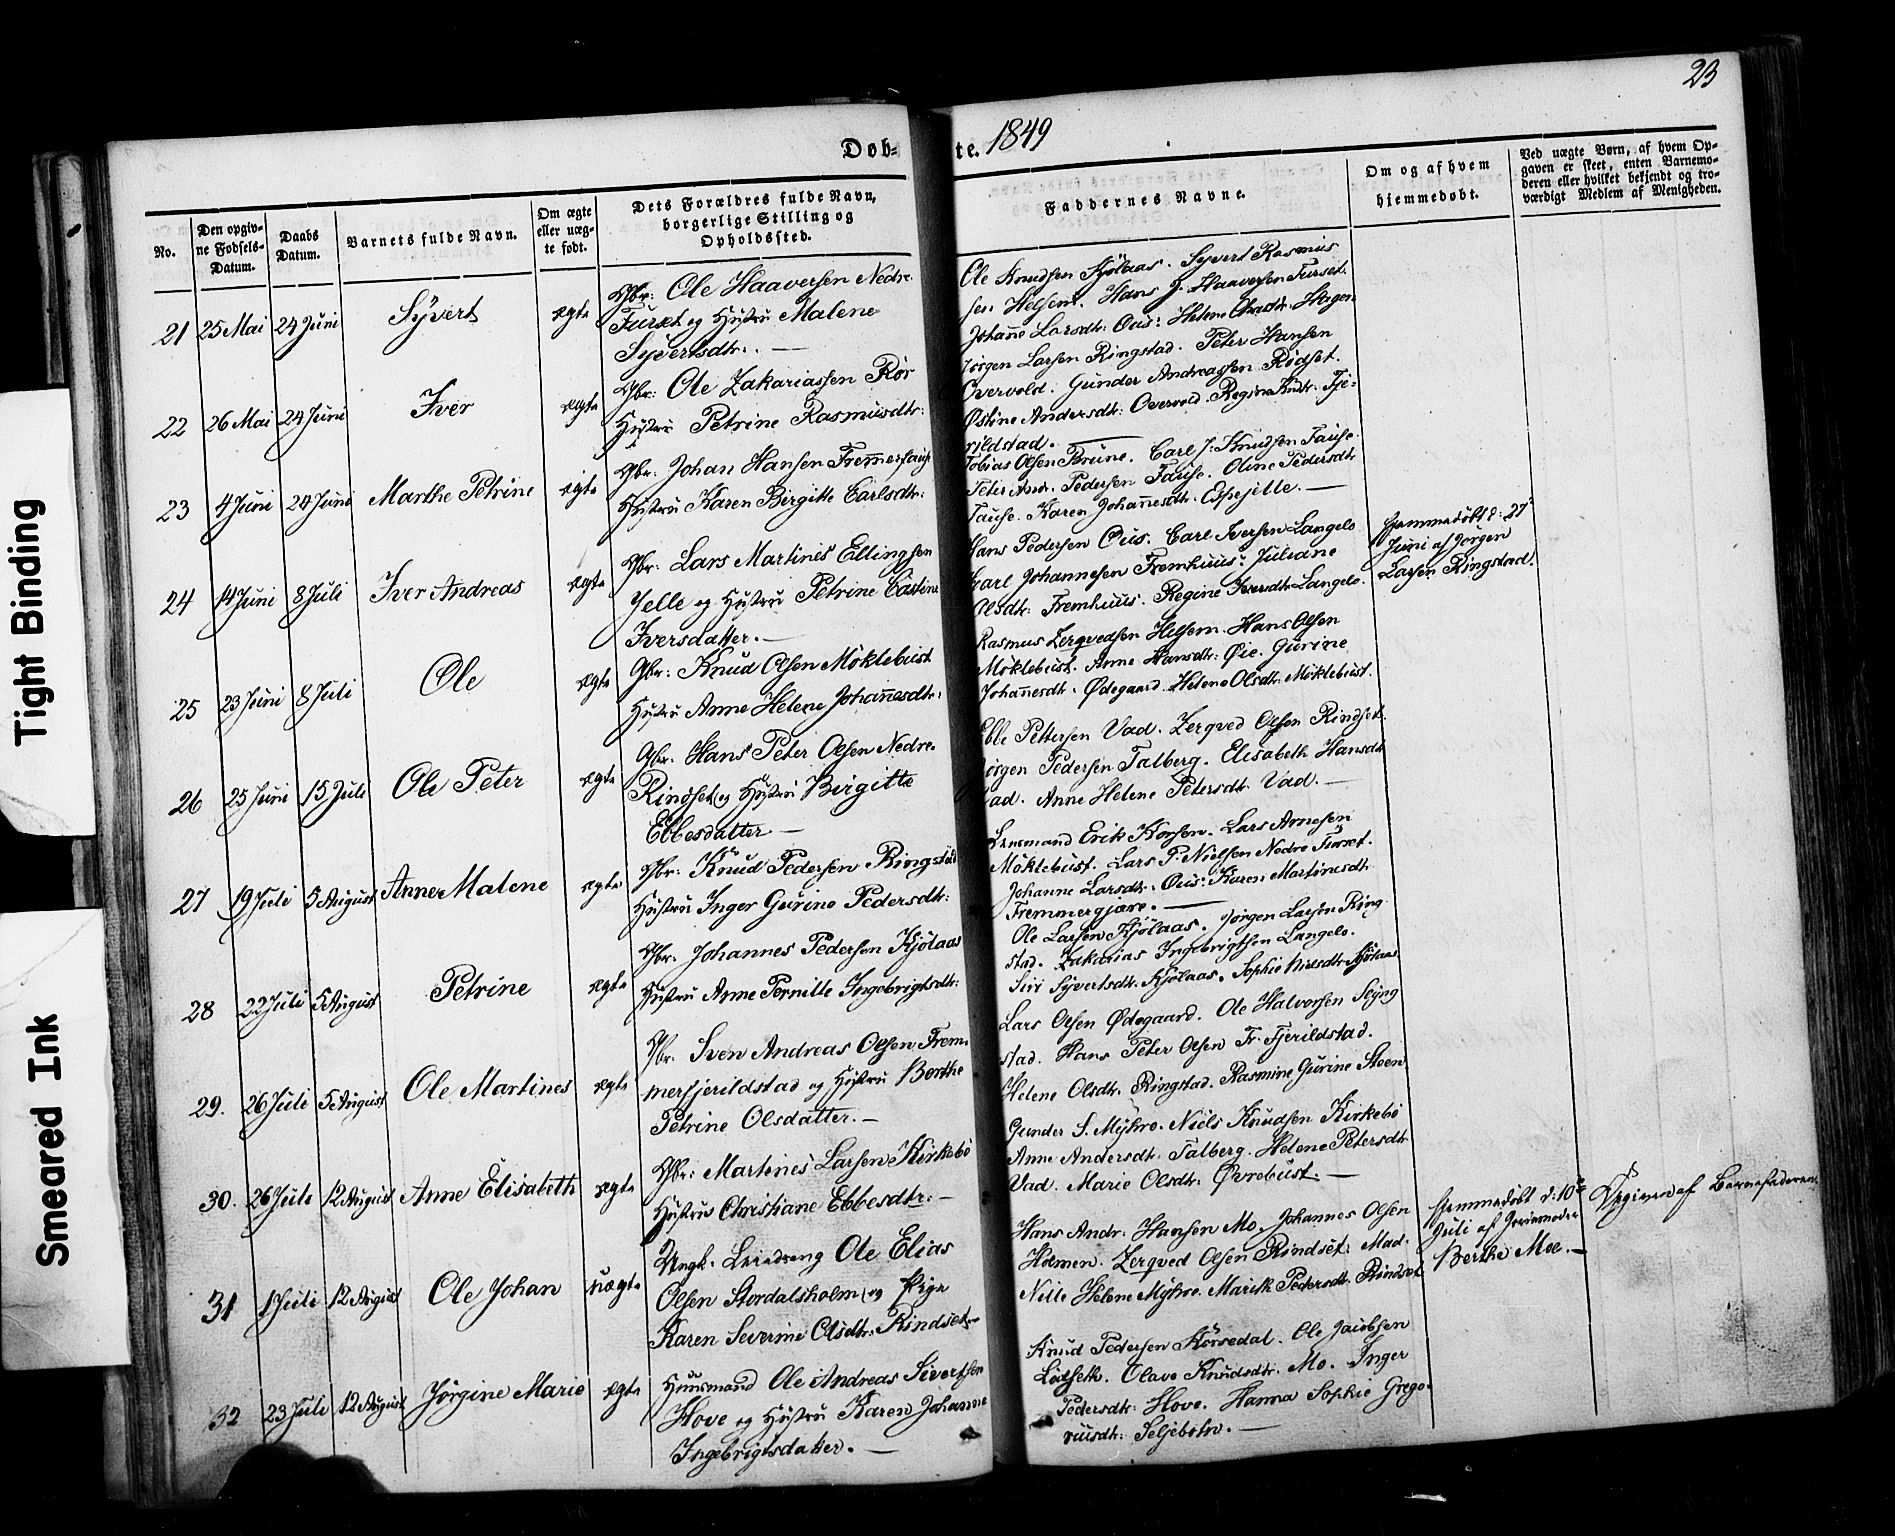 23
Døb-
te. 1849
No.
Den opgiv-
ne Fødsels-
Datum.
Daabs
Datum.
Barnets fulde Navn.
Om ægte
eller uæg-
te født.
Dets Forældres fulde Navn,
borgerlige Stilling og
Opholdssted.
Faddernes Navne.
Om og af hvem
hjemmedøbt.
Ved uægte Børn, af hvem Op-
gaven er skeet, enten Barnemo-
deren eller hvilket bekjendt og tro-
værdigt Medlem af Menigheden.
21 25 Mai 24 Juni Syvert ægte
Gbr: Ole Haaversen Nedre
Furset og Hustru Malene
Syvertsdtr:. —
Ole Knudsen Kjölaas. Syvert Rasmus
sen Helsem. Hans J. Haaversen Furset.
Johanne Larsdtr: Ous: Helene
22 26 Mai 24 Juni Iver ægte
Gbr: Ole Zakariassen Rør
Hustru Petrine Rasmusdtr:
Jørgen Larsen Ringstad. Peter Hansen
Overvold. Gunder Andreassen Rødset.
Østine Andersdtr: Overvold. Regine Knudtr: Fje-
rildstad. —
23 4 Juni 24 Juni Marthe Petrine ægte
Gbr. Johan Hansen Fremerhause
Hustru Karen Birgitte Carlsdtr:
Tobias Olsen Brune. Carl J. Knudsen Fause.
Peter Andr. Pedersen Fause. Oline Pedersdtr
Fause. Karen Johannesdtr. Espejelle. —
24 14 Juni 8 Juli Iver Andreas ægte
Gbr. Lars Martines Ellingsen
Jelle og Hustru Petrine Castine
Iversdatter. —
Hans Pedersen Ous. Carl Iversen Langelo
Carl Johannesen Fremhuus: Juliane
Olsdtr: Fremhuus. Regine Iversdtr Langelo.
Hjemmedøbt d: 27de
Juni af Jørgen
Larsen Ringstad.
25 23 Juni 8 Juli Ole ægte
Gbr: Knud Olsen Möklebust
Hustru Anne Helene Johannesdtr:
Rasmus Zerqvedsen Helsem. Hans Olsen
Möklebust. Anne Hansdtr: Øie. Gurine
Johannesdtr. Ødegaard. Helene Olsdtr: Möklebust.
26 25 Juni 15 Juli Ole Peter ægte
Gbr. Hans Peter Olsen Nedre
Rindset og Hustru Birgitte
Ebbesdatter. —
Ebbe Pettersen Vad. Zerqved Olsen Rindset.
Jörgen Pedersen Talberg. Elisabeth Hansdtr
Vad. Anne Helene Petersdtr. Vad. —
27 19 Juli 5 August Anne Malene ægte
Gbr: Knud Pedersen Ringstad
Hustru Inger Gurine Pedersdtr:
Lensmand Erik Korsen. Lars Arnesen
Möklebust. Lars P. Nielsen Nedre Furset.
Johanne Larsdtr. Ous: Karen Martinusdtr.
Fremmergjære. —
28 22 Juli 5 August Petrine ægte
Gbr. Johannes Pedersen Kjölaas
Hustru Anne Pernille Ingebrigtsdtr:
Ole Larsen Kjölaas. Jörgen Larsen Ring
stad. Zakarias Ingebrigtsen Langelo.
Siri Syvertsdtr. Kjölaas. Sophie Nielsdtr Kjölaas.
29. 26 Juli 5 August Ole Martines ægte
Gbr. Sven Andreas Olsen Frem-
merfjerildstad og Hustru Berthe
Petrine Olsdatter. —
Lars Olsen Ødegaard. Ole Halversen Slyng
stad. Hans Peter Olsen Fr. Fjerildstad.
Helene Olsdtr. Ringstad. Rasmine Gurine Steen
30. 26 Juli 12 August Anne Elisabeth ægte
Gbr: Martines Larsen Kirkebö
Hustru Christiane Ebbesdtr: —
Gunder S. Myhre. Niels Knudsen Kirkebö
Anne Andersdtr. Talberg. Helene Petersdtr
Vad. Marie Olsdtr: Øvrebust. —
31 1 Juli 12 August Ole Johan uægte
Ungk. Leiedreng Ole Elias
Olsen Stordalsholm og Pige
Karen Severine Olsdtr: Rindset. —
Hans Andr. Hansen Mo. Johannes Olsen
Holmen. Zerqved Olsen Rindset. Mad.
Nille Helene Myhre. Marith Pedersdtr. Rindset
Hjemmedøbt d: 10de
Juli af Jordemoder
Berthe Moe. —
Opgiven af Barnefaderen.
32 23 Juli 12 August Jörgine Marie ægte
Huusmand Ole Andreas Sivertsen
Hove og Hustru Karen Johanne
Ingebrigtsdatter. —
Knud Pedersen Korsedal. Ole Jacobsen
Lidseth. Olave Knudsdtr. Mo. Inger
Pedersdtr: Hove. Hanna Sophie Grego-
riusdtr: Seljebotn. —
Tight Binding
Smeared Ink